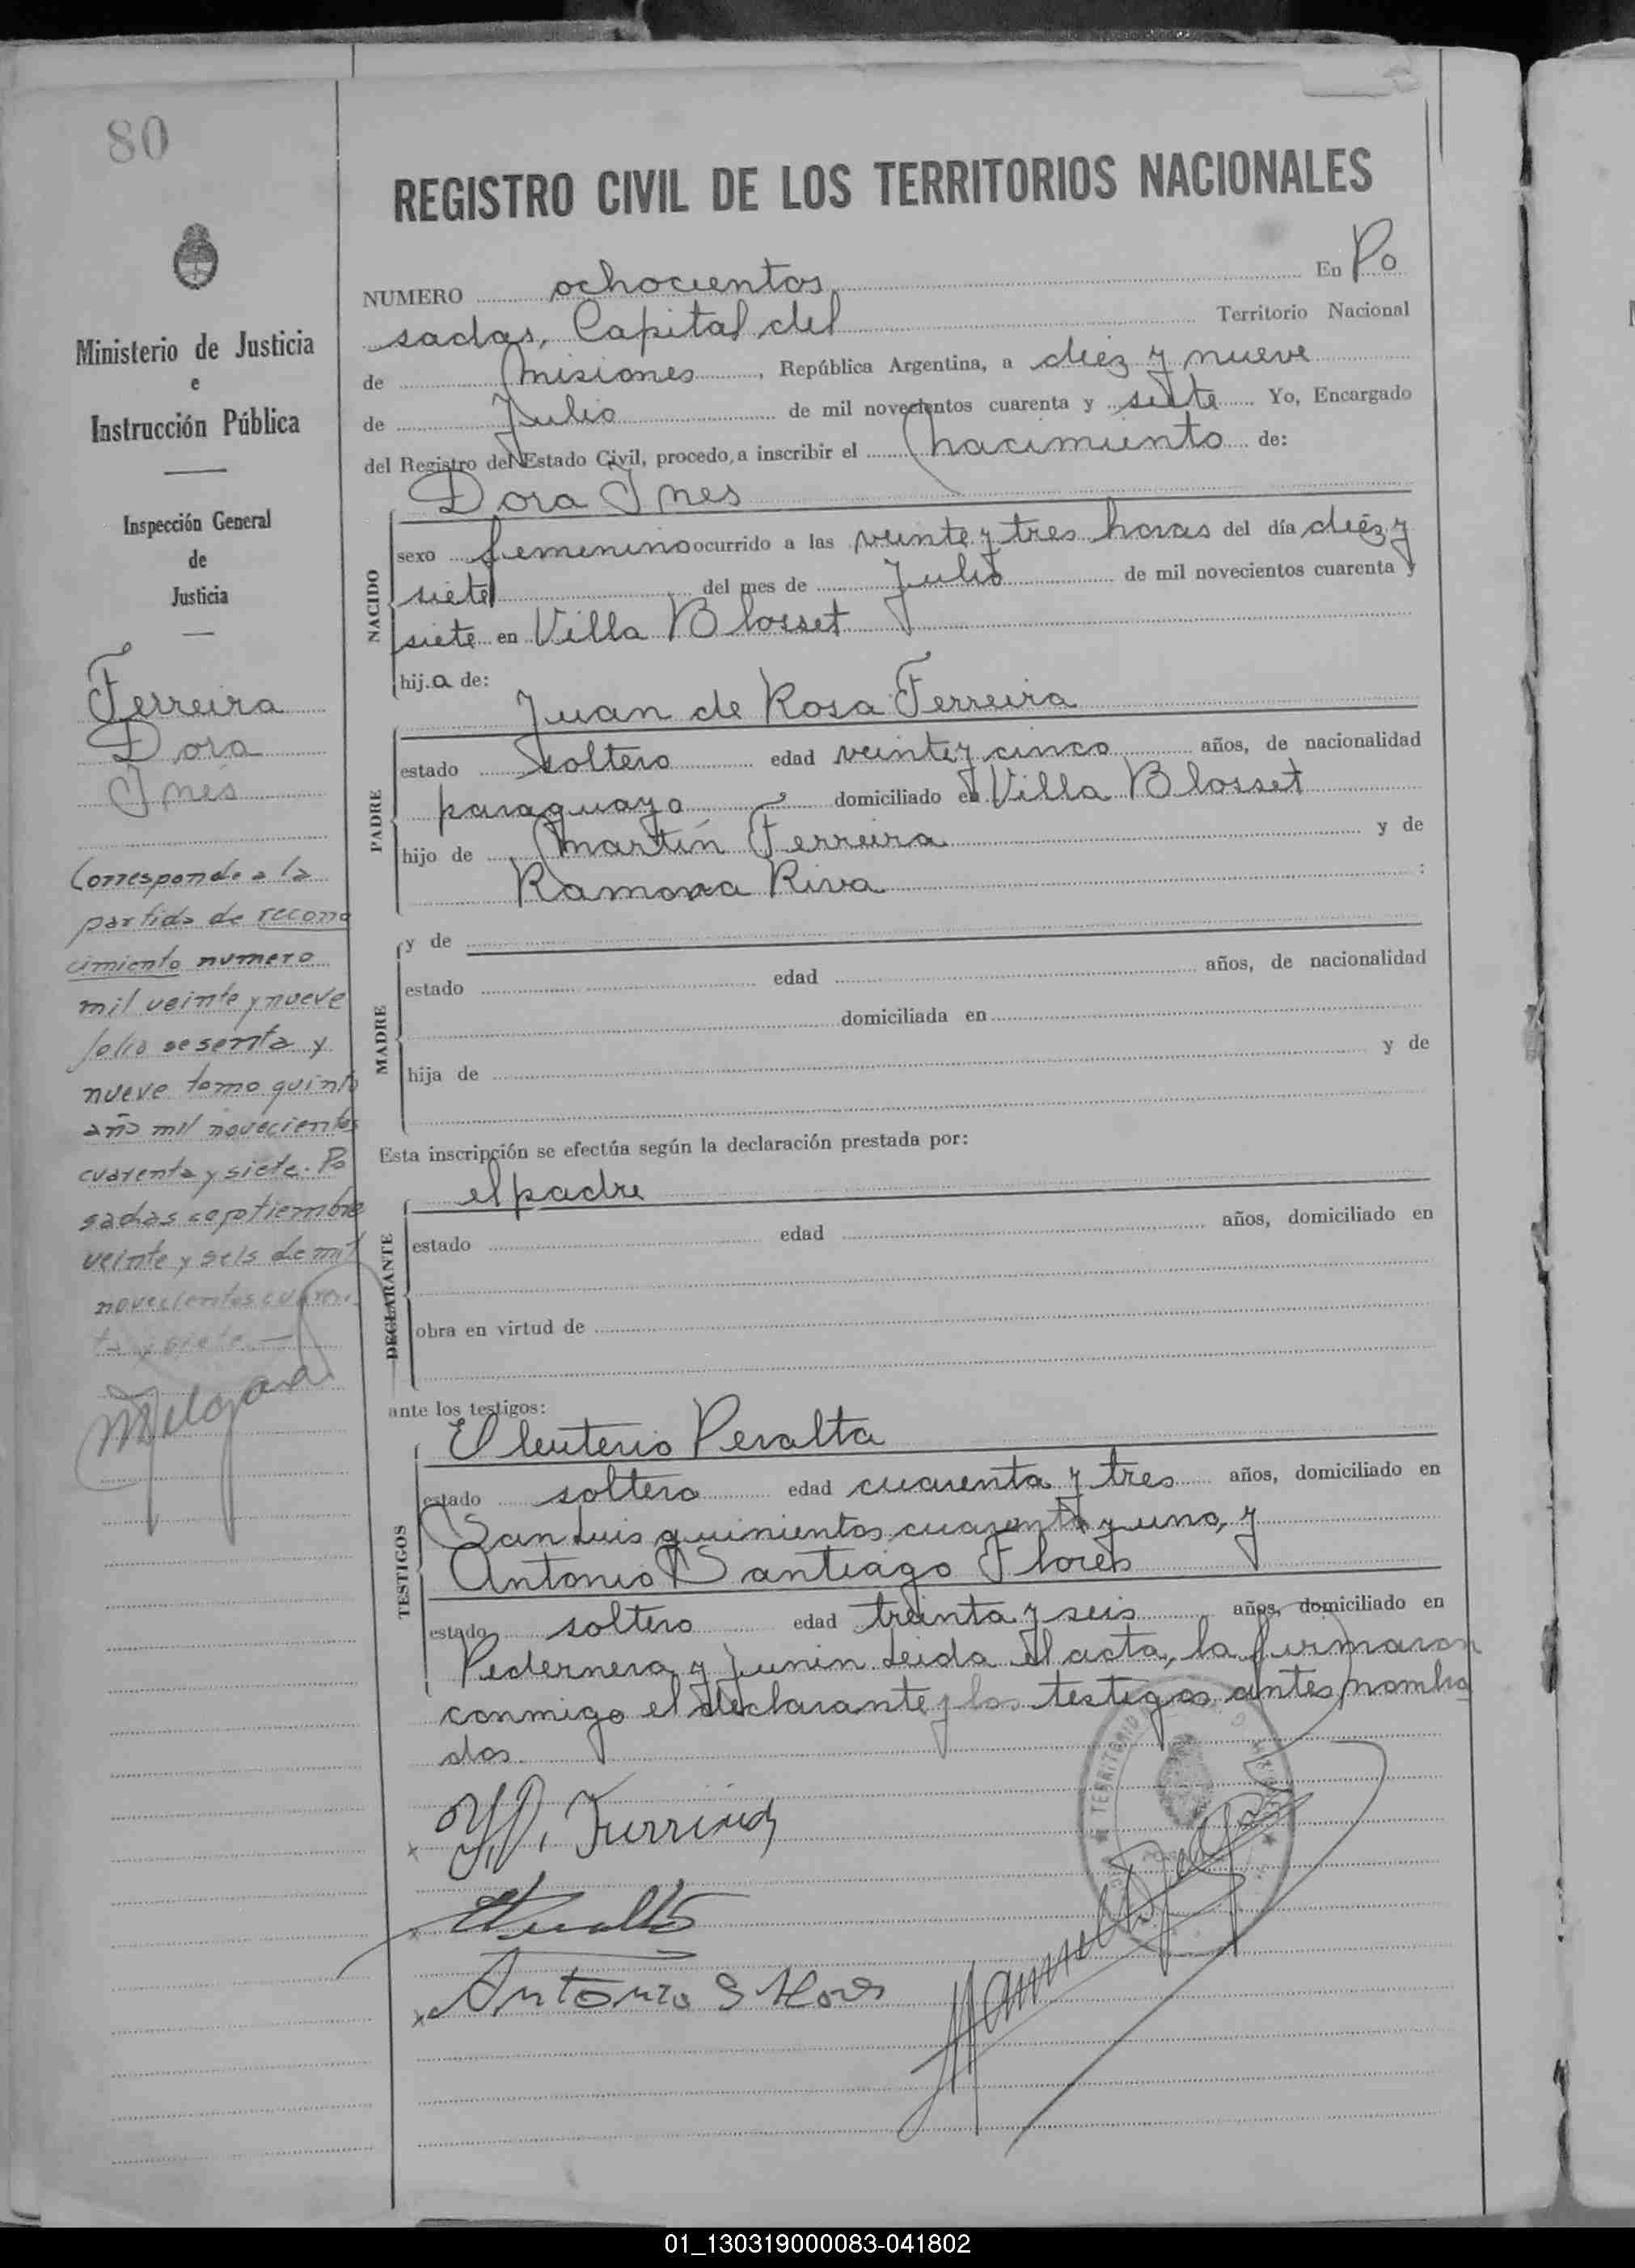 80
Ministerio de Justicia
e
Instrucción Pública
Inspección General
de
Justicia
Ferreira
Dora
Inés
Corresponde a la
partida de recono
cimiento numero
mil veinte y nueve
folio sesenta y
nueve tomo quinto
año mil novecientos
cuarenta y siete. Po
sadas septiembre
veinte y seis de mil
novecientos cuaren
ta y siete.—
REGISTRO CIVIL DE LOS TERRITORIOS NACIONALES
NUMERO ochocientos En Po
sadas, Capital del Territorio Nacional
de Misiones, República Argentina, a diez y nueve
de Julio de mil novecientos cuarenta y siete Yo, Encargado
del Registro del Estado Civil, procedo a inscribir el nacimiento de:
Dora Ines
NACIDO
sexo femenino ocurrido a las veinte y tres horas del día diez y
siete del mes de Julio de mil novecientos cuarenta y
siete en Villa Blosset
hij.a de:
Juan de Rosa Ferreira
PADRE
estado soltero edad veinte y cinco años, de nacionalidad
paraguaya domiciliado en Villa Blosset
hijo de Martín Ferreira y de
Ramona Riva :
MADRE
y de
estado edad años, de nacionalidad
domiciliada en
hija de y de
Esta inscripción se efectúa según la declaración prestada por:
el padre
DECLARANTE
estado edad años, domiciliado en
obra en virtud de
ante los testigos:
Eleuterio Peralta
TESTIGOS
estado soltero edad cuarenta y tres años, domiciliado en
San Luis quinientos cuarenta y uno, y
Antonio Santiago Flores
estado soltero edad treinta y seis años, domiciliado en
Pedernera y Junin Leida el acta, la firmaron
conmigo el declarante y los testigos antes nombra
dos
Antonio S Flores
TERRITORIO
01_130319000083-041802